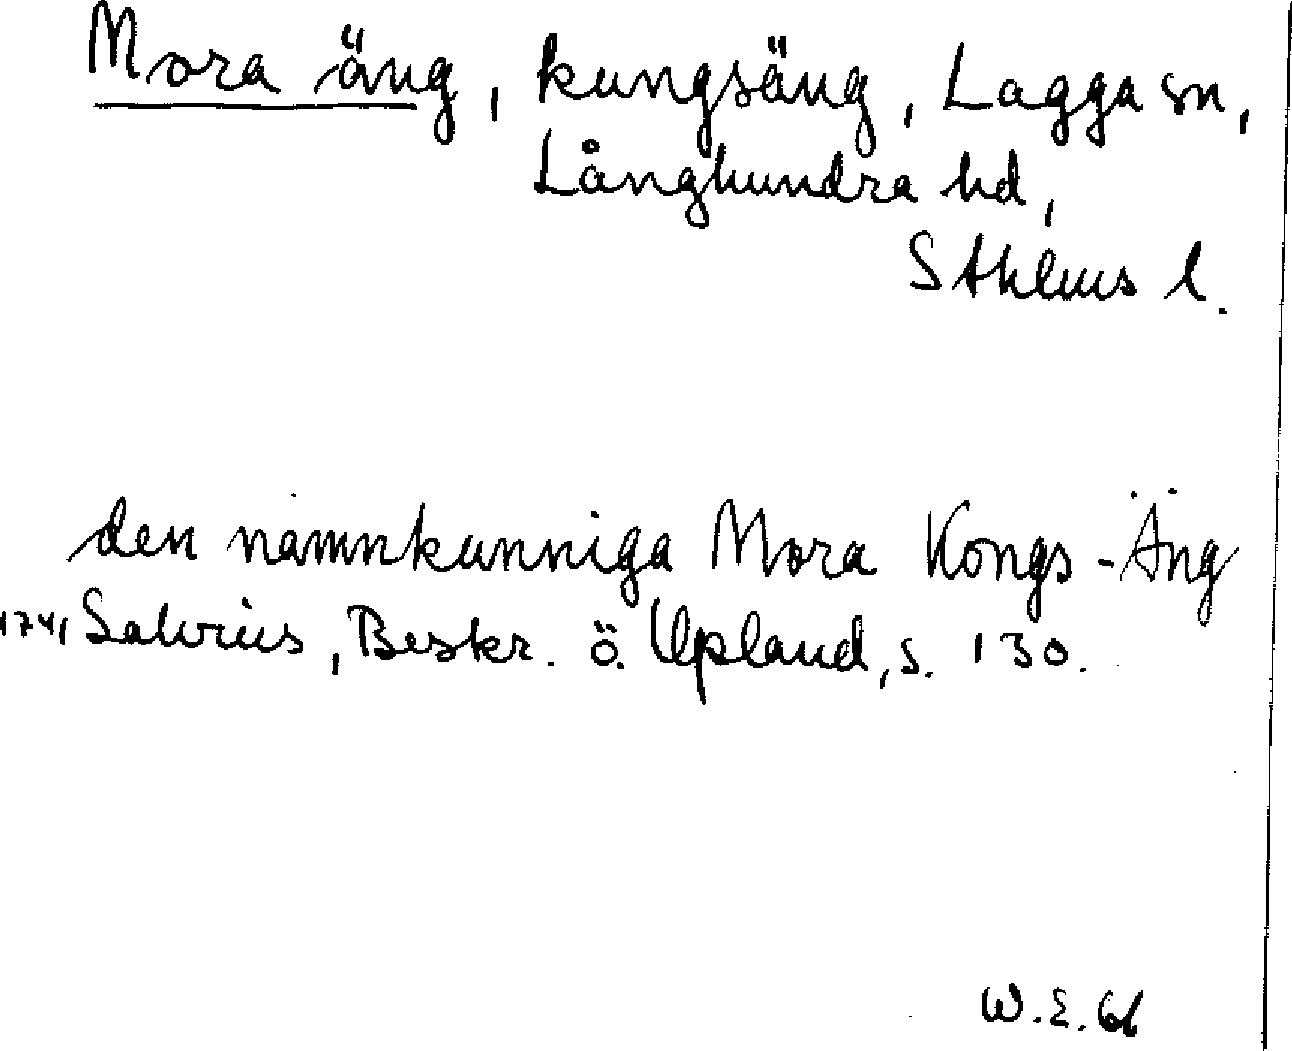 Mora äng, kungsäng, Lagga sn,
Långhundra hd,
Sthlms l.
den namnkunniga Mora Kongs-Äng
1741 Salvius, Beskr. ö. Upland, s. 130.
W.E. 66